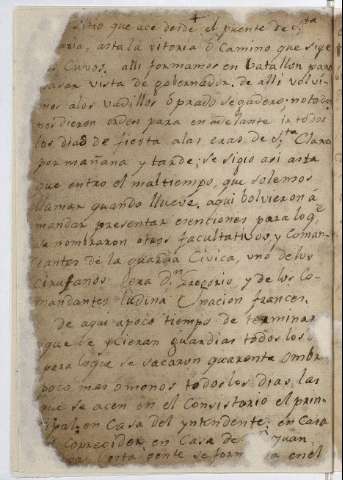 sitio que ace desde el puente de Sta
Maria, asta la vitoria d Camino que sige
los Cuvos, alli formamos en batallon para
pasar vista de gobernador, de alli volvi
mos a los vudillos o prado segadero, no todo
nos dieron orden para en adelante ir todos
los dias de fiesta a las eras de Sta Clara
por mañana y tarde, se sigio asi asta
que entro el mal tiempo, que solemos
llamar quando llueve, aqui bolvieron á
mandar presentar esenciones para loq
se nombraron otros facultativos, y coman
dantes de la guardia Civica, uno de los
cirujanos era Dn Gregorio, y de los co
mandantes Ludina nacion frances,
De aqui a poco tiempo de terminar
que se hicieran guardias todos los
para loque se sacaron quarenta ombr
poco mas o menos todos los dias, las
que se acen en el Consistorio el prin
cipal, en Casa del yntendente, en Casa
Corregidor, en Casa de Juan
esta gente se form en el